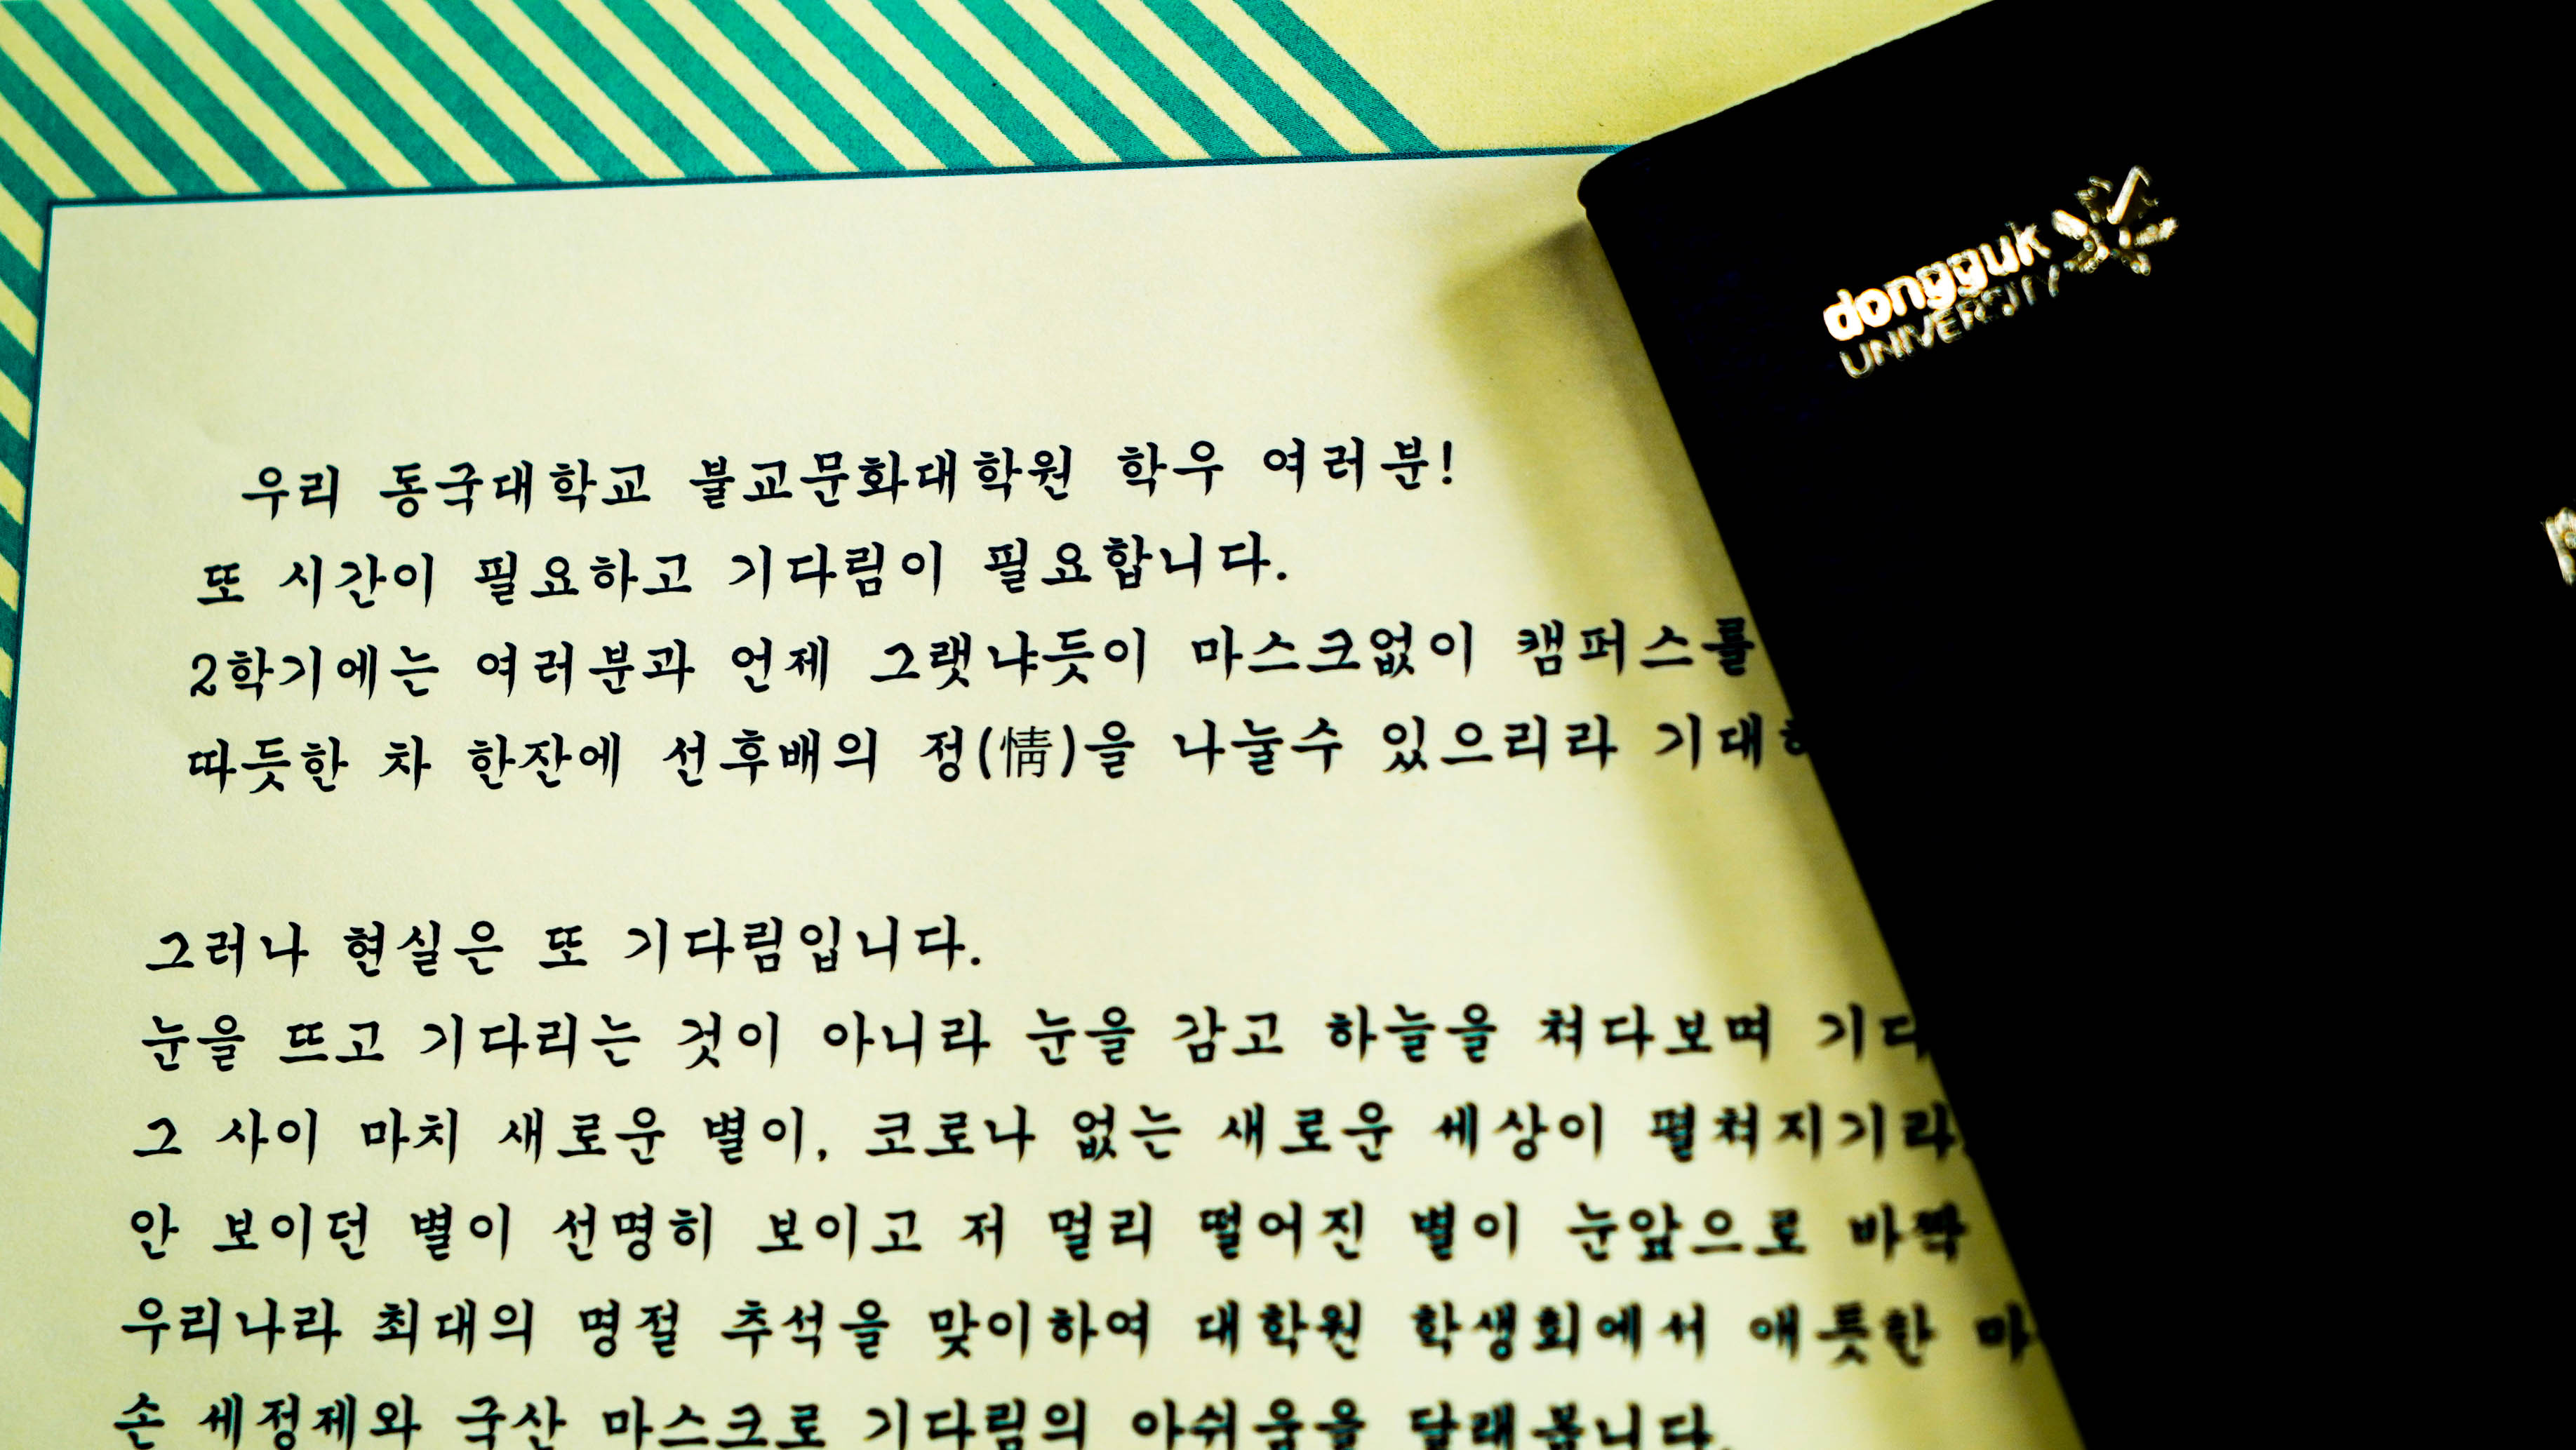 우리 동국대학교 불교문화대학원 학우 여러분!
또 시간이 필요하고 기다림이 필요합니다.
2학기에는 여러분과 언제 그랬냐듯이 마스크없이 캠퍼스를
따듯한 차 한잔에 선후배의 정(情)을 나눌수 있으리라 기대
그러나 현실은 또 기다림입니다.
눈을 뜨고 기다리는 것이 아니라 눈을 감고 하늘을 쳐다보며 기다
그 사이 마치 새로운 별이, 코로나 없는 새로운 세상이 펼쳐지기라
안 보이던 별이 선명히 보이고 저 멀리 떨어진 별이 눈앞으로 바짝
우리나라 최대의 명절 추석을 맞이하여 대학원 학생회에서 애틋한 마
손 세정제와 국산 마스크로 기다림의 아쉬움을 달래봅니다.
dongguk
UNIVERSITY